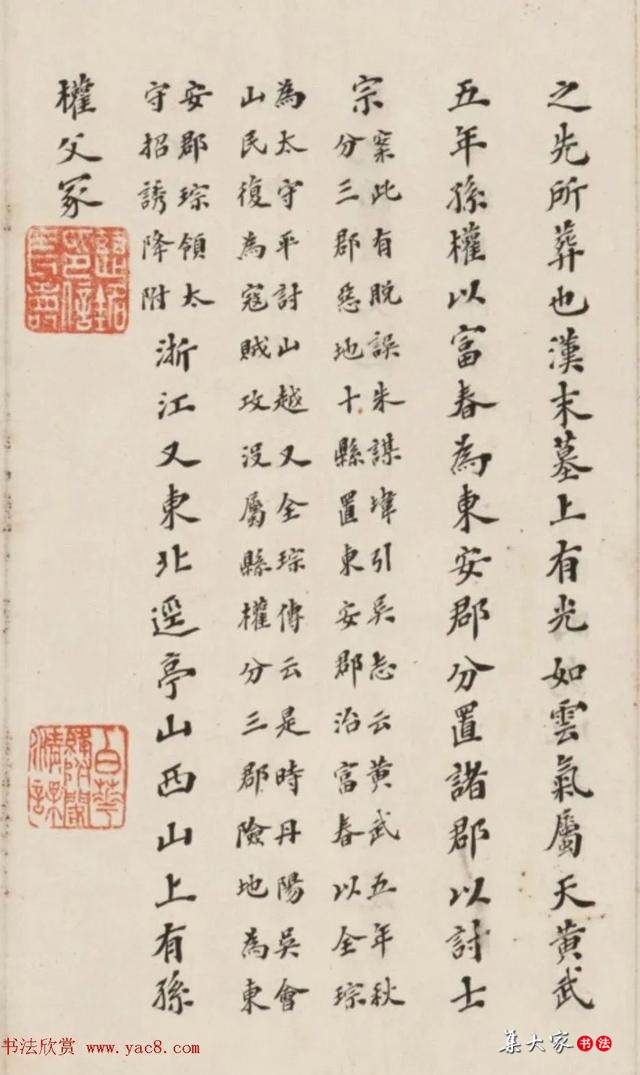 之先所葬也漢末墓上有光如雲氣屬天黃武
五年孫權以富春為東安郡分置諸郡以討士
宗
案此有脫誤朱謀㙔引吳志云黃武五年秋
分三郡惡地十縣置東安郡治富春以全琮
為太守平討山越又全琮傳云是時丹陽吳會
山民復為寇賊攻沒屬縣權分三郡險地為東
安郡琮領太
守招誘降附
浙江又東北逕亭山西山上有孫
權父冢
书法欣赏 www.yac8.com
集大家 书法